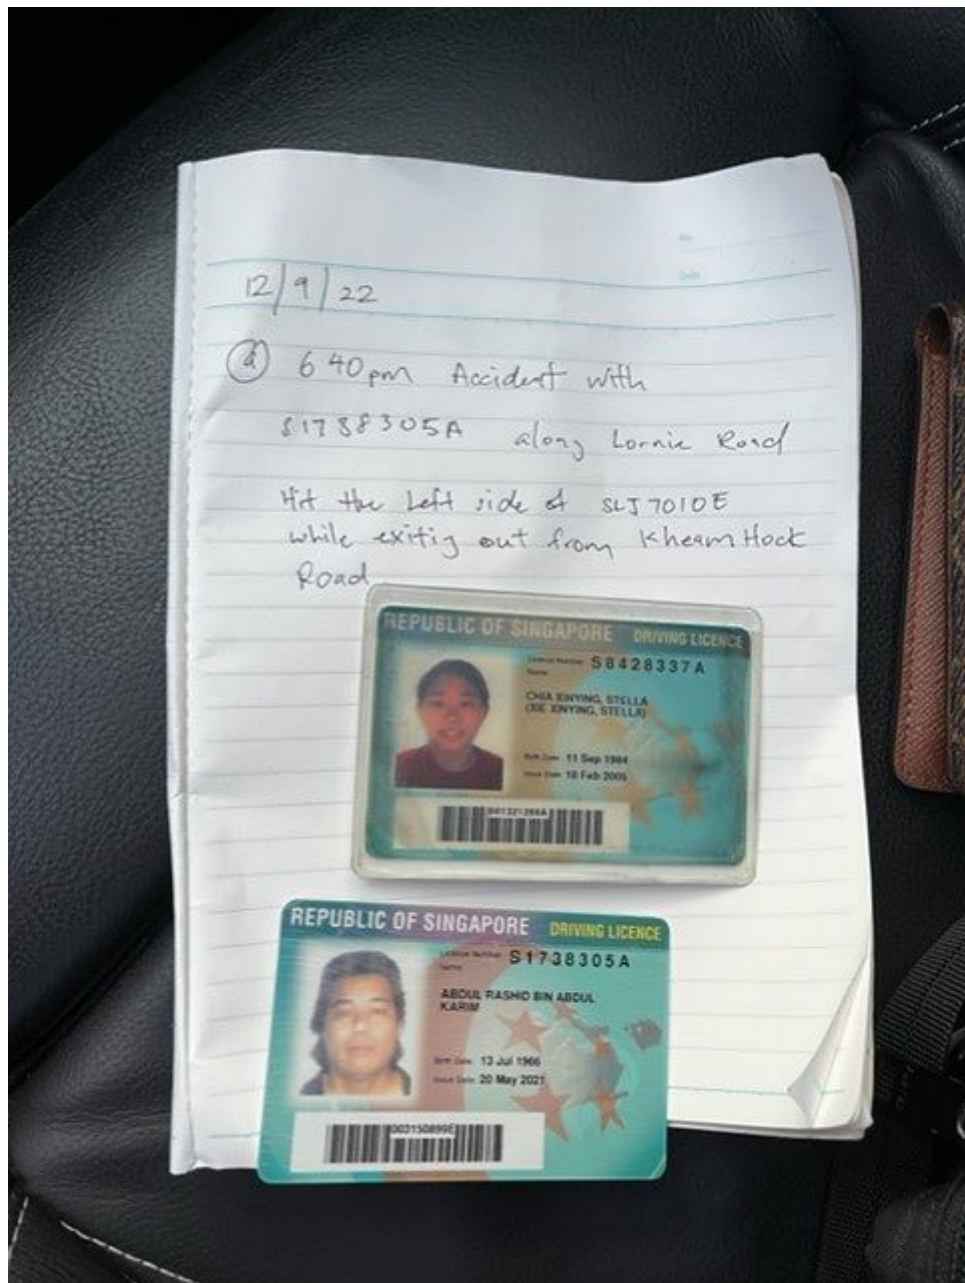 12/9/22
@ 640pm Accident with
S1738305A along Lornie Road
Hit the Left side of SLJ7010E
while exitig out from Kheam Hock
Road
REPUBLIC OF SINGAPORE DRIVING LICENCE
Licence Number S8428337A
Name
CHIA XINYING, STELLA
(XIE XINYING, STELLA)
Birth Date 11 Sep 1984
Issue Date 18 Feb 2005
REPUBLIC OF SINGAPORE DRIVING LICENCE
Licence Number S1738305A
Name
ABDUL RASHID BIN ABDUL
KARIM
Birth Date 13 Jul 1966
Issue Date 20 May 2021